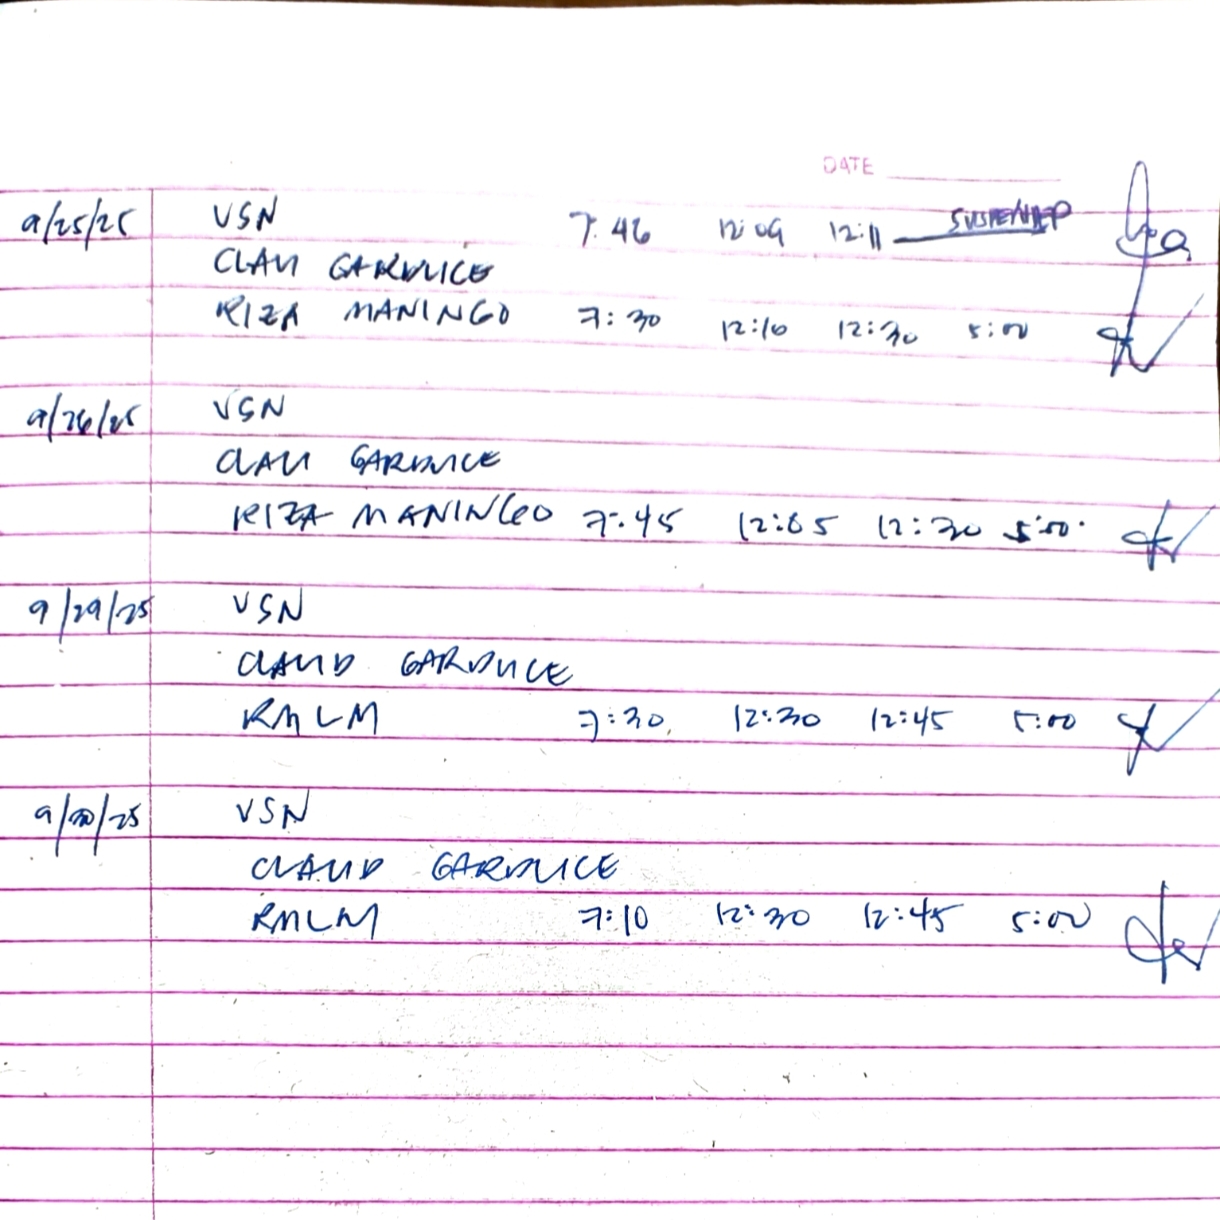 DATE
9/25/25 VSN 7:46 12:09 12:11 SUSPENDED
CLAU GARDUCE
RIZA MANINGO 7:30 12:10 12:30 5:00
9/26/25 VSN
CLAU GARDUCE
RIZA MANINGO 7:45 12:05 12:30 5:00
9/29/25 VSN
CLAUD GARDUCE
RMLM 7:30 12:30 12:45 5:00
9/30/25 VSN
CLAUD GARDUCE
RMLM 7:10 12:30 12:45 5:00